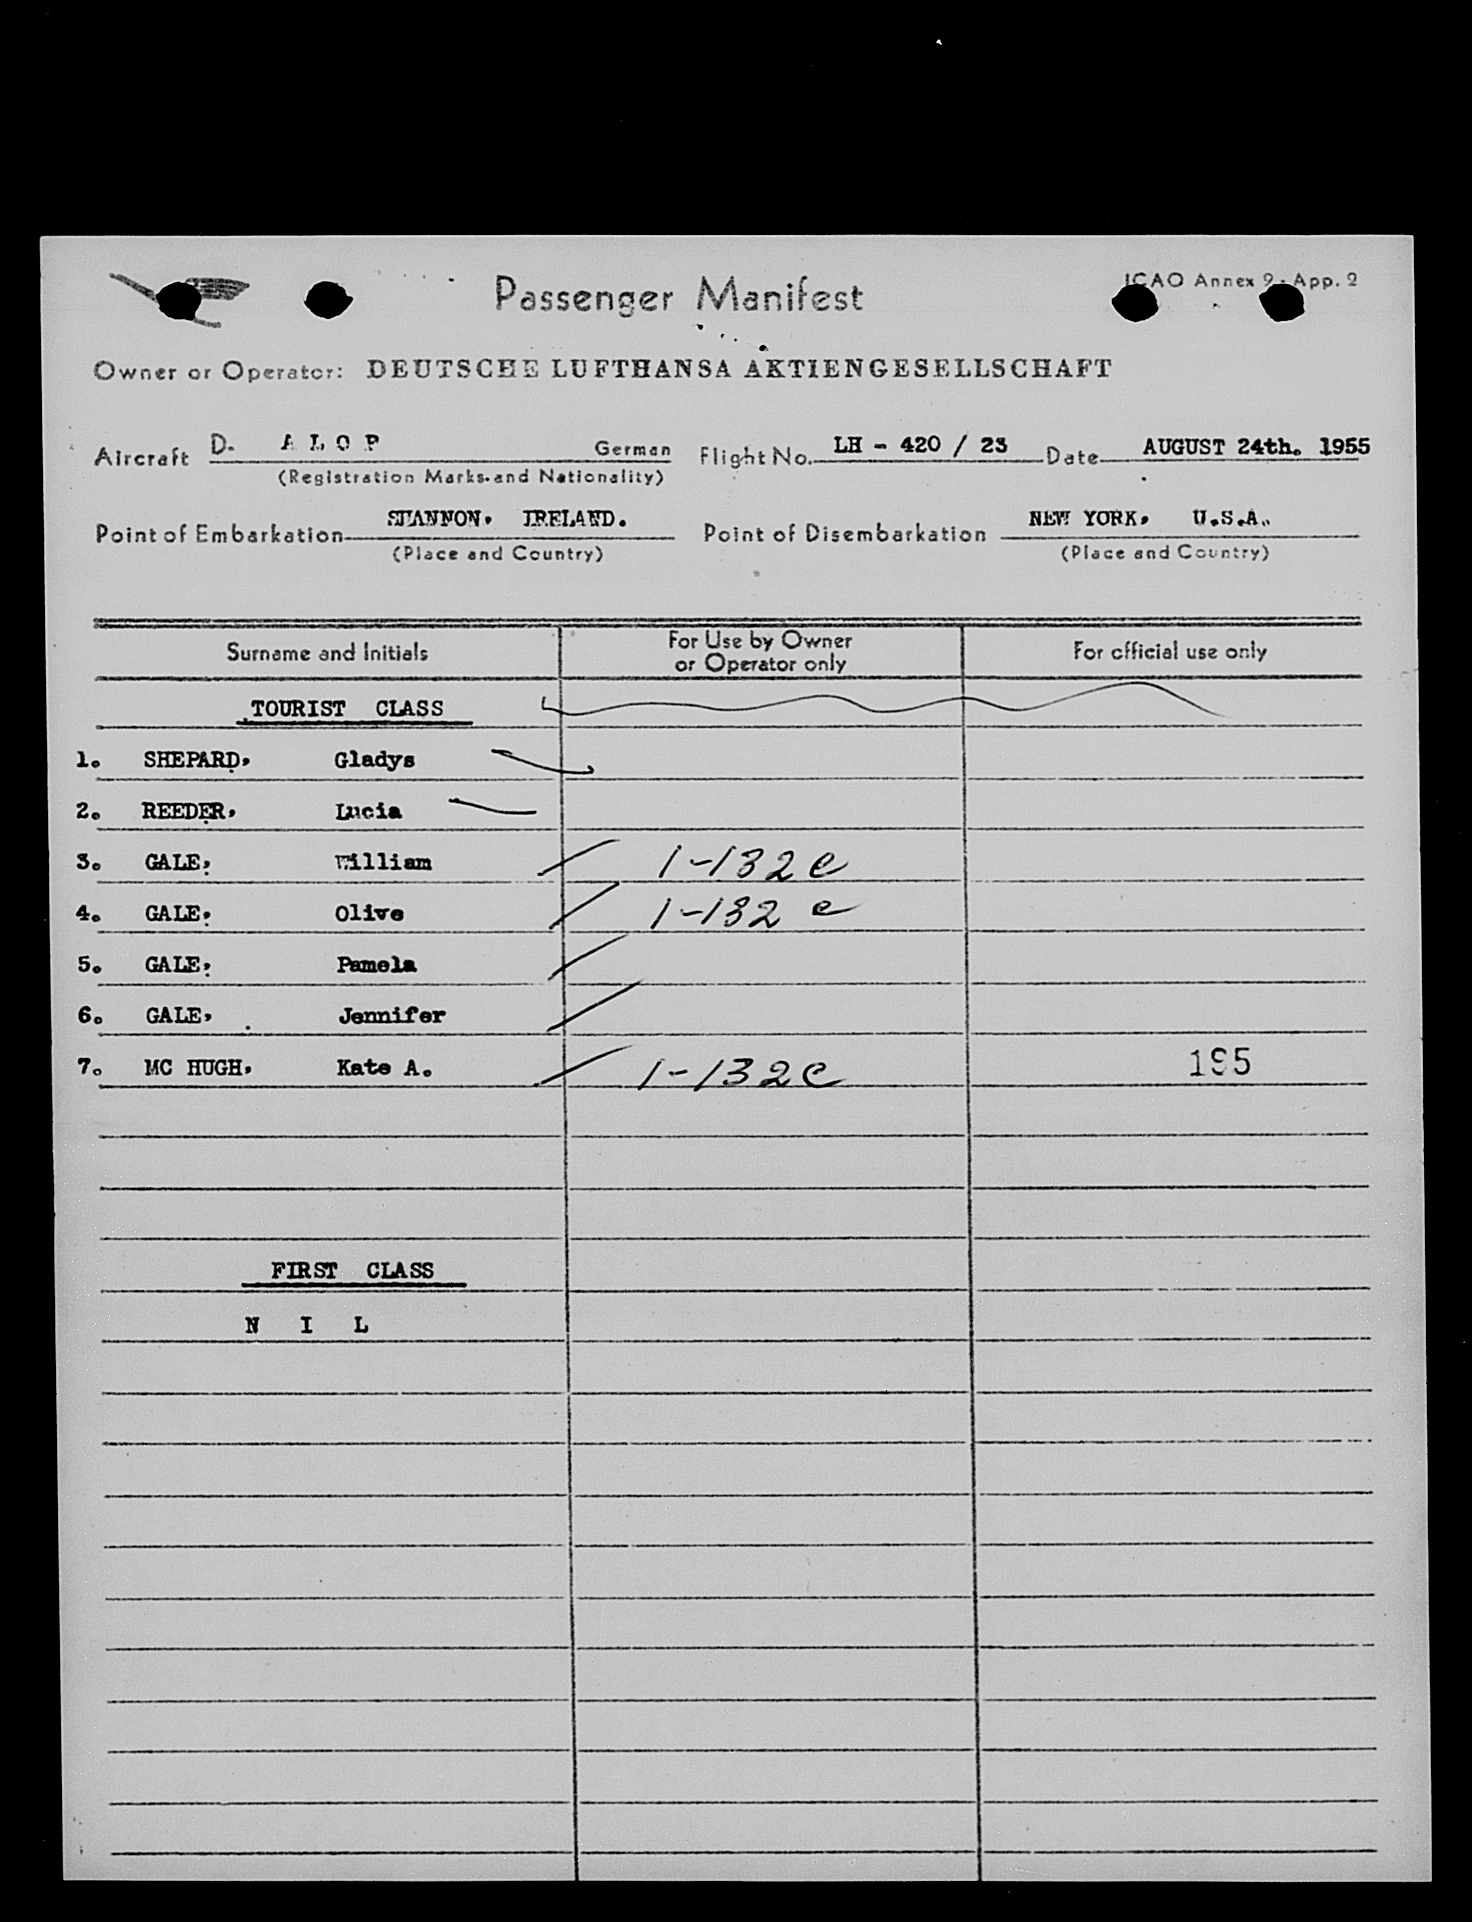 Passenger Manifest
ICAO Annex 9 - App. 2
Owner or Operator: DEUTSCHE LUFTHANSA AKTIENGESELLSCHAFT
Aircraft D- A L O P German Flight No. LH - 420 / 23 Date AUGUST 24th. 1955
(Registration Marks and Nationality)
Point of Embarkation SHANNON, IRELAND. Point of Disembarkation NEW YORK, U.S.A.
(Place and Country) (Place and Country)
Surname and Initials For Use by Owner or Operator only For official use only
TOURIST CLASS
1. SHEPARD, Gladys
2. REEDER, Lucia
3. GALE, William 1-132 e
4. GALE, Olive 1-132 e
5. GALE, Pamela
6. GALE, Jennifer
7. MC HUGH, Kate A. 1-132 e 195
FIRST CLASS
N I L